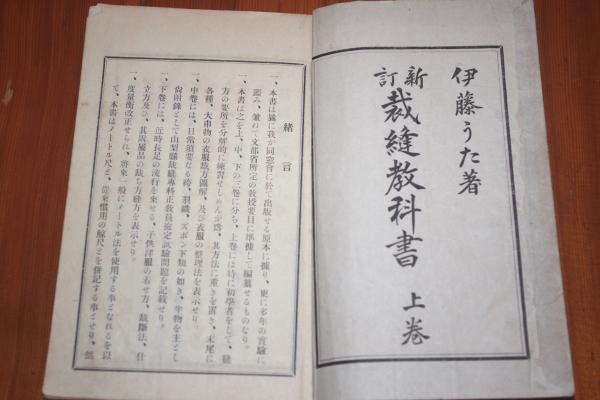 伊藤うた著
新訂 裁縫教科書 上巻
緒言
一、本書は曩に我が同窓會に於て出版せる原本に據り、更に多年の實驗に
鑑み、兼ねて文部省所定の教授要目に準據して編纂せるものなり。
一、本書は之を上、中、下の三卷に分ち、上卷には特に初學者をして、縫
方の要所を分解的に練習せしめんが爲、其方法に重きを置き、末尾に
各種、大巾物の衣服裁方圖解、及び衣服の整理法を表示せり。
一、中卷には、日常須要なる袴、羽織、ズボン下類の如き、半物を主とし
尙附錄として山梨縣裁縫專科正教員檢定試驗問題を記載せり。
一、下卷には、近時長足の流行を來せる、子供洋服の着せ方、裁斷法、仕
立方及び、其附屬品の裁ち方縫方を表示せり。
一、度量衡改正せられ、將來一般にメートル法を使用する事となれるを以
て、本書はメートル尺と、從來慣用の鯨尺とを併記する事とせり、然